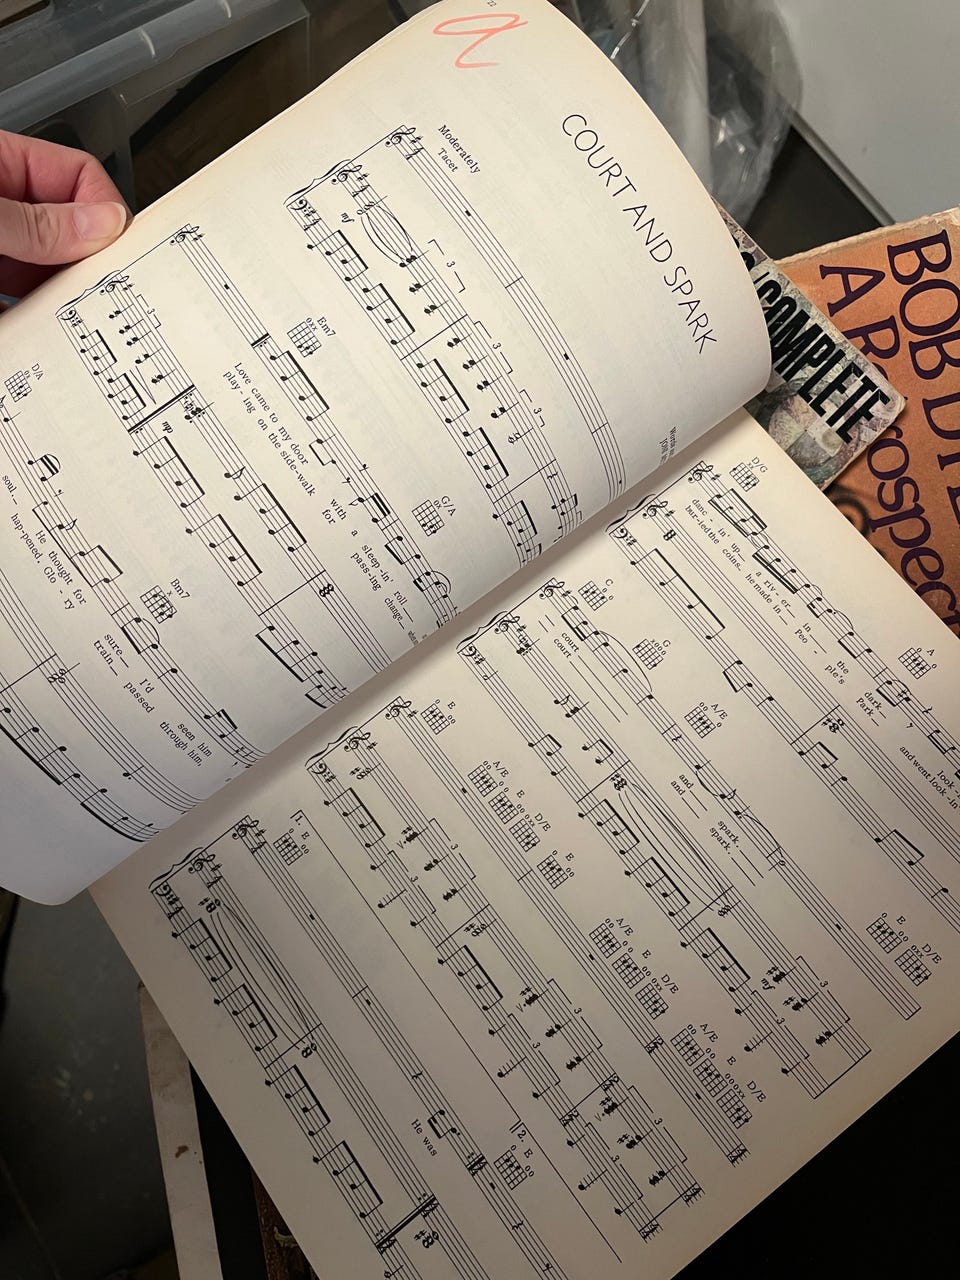 22
a
COURT AND SPARK
Moderately
Tacet
mf
3
3
3
Em7
G/A
Love came to my door with a sleep-in' roll
play - ing on the side-walk for pass-ing change
mp
3
D/A
Bm7
soul. He thought for sure I'd seen him
hap-pened. Glo - ry train passed through him,
D/G
A
danc - in' up a riv - er in the dark
bur-ied the coins he made in Peo - ple's Park
and went look - in'
C
G
A/E
E
D/E
court and spark.
court and spark.
mf
3
3
E
A/E
E
D/E
E
A/E
E
D/E
A/E
E
D/E
3
3
3
3
3
3
1. E
2. E
He was
COMPLETE
BOB
A